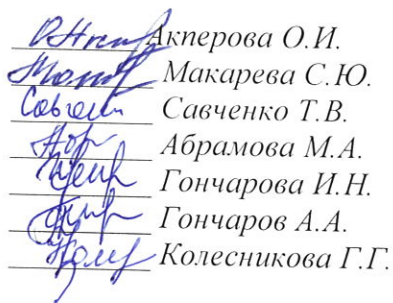 Акперова О.И.
Макарева С.Ю.
Савченко Т.В.
Абрамова М.А.
Гончарова И.Н.
Гончаров А.А.
Колесникова Г.Г.